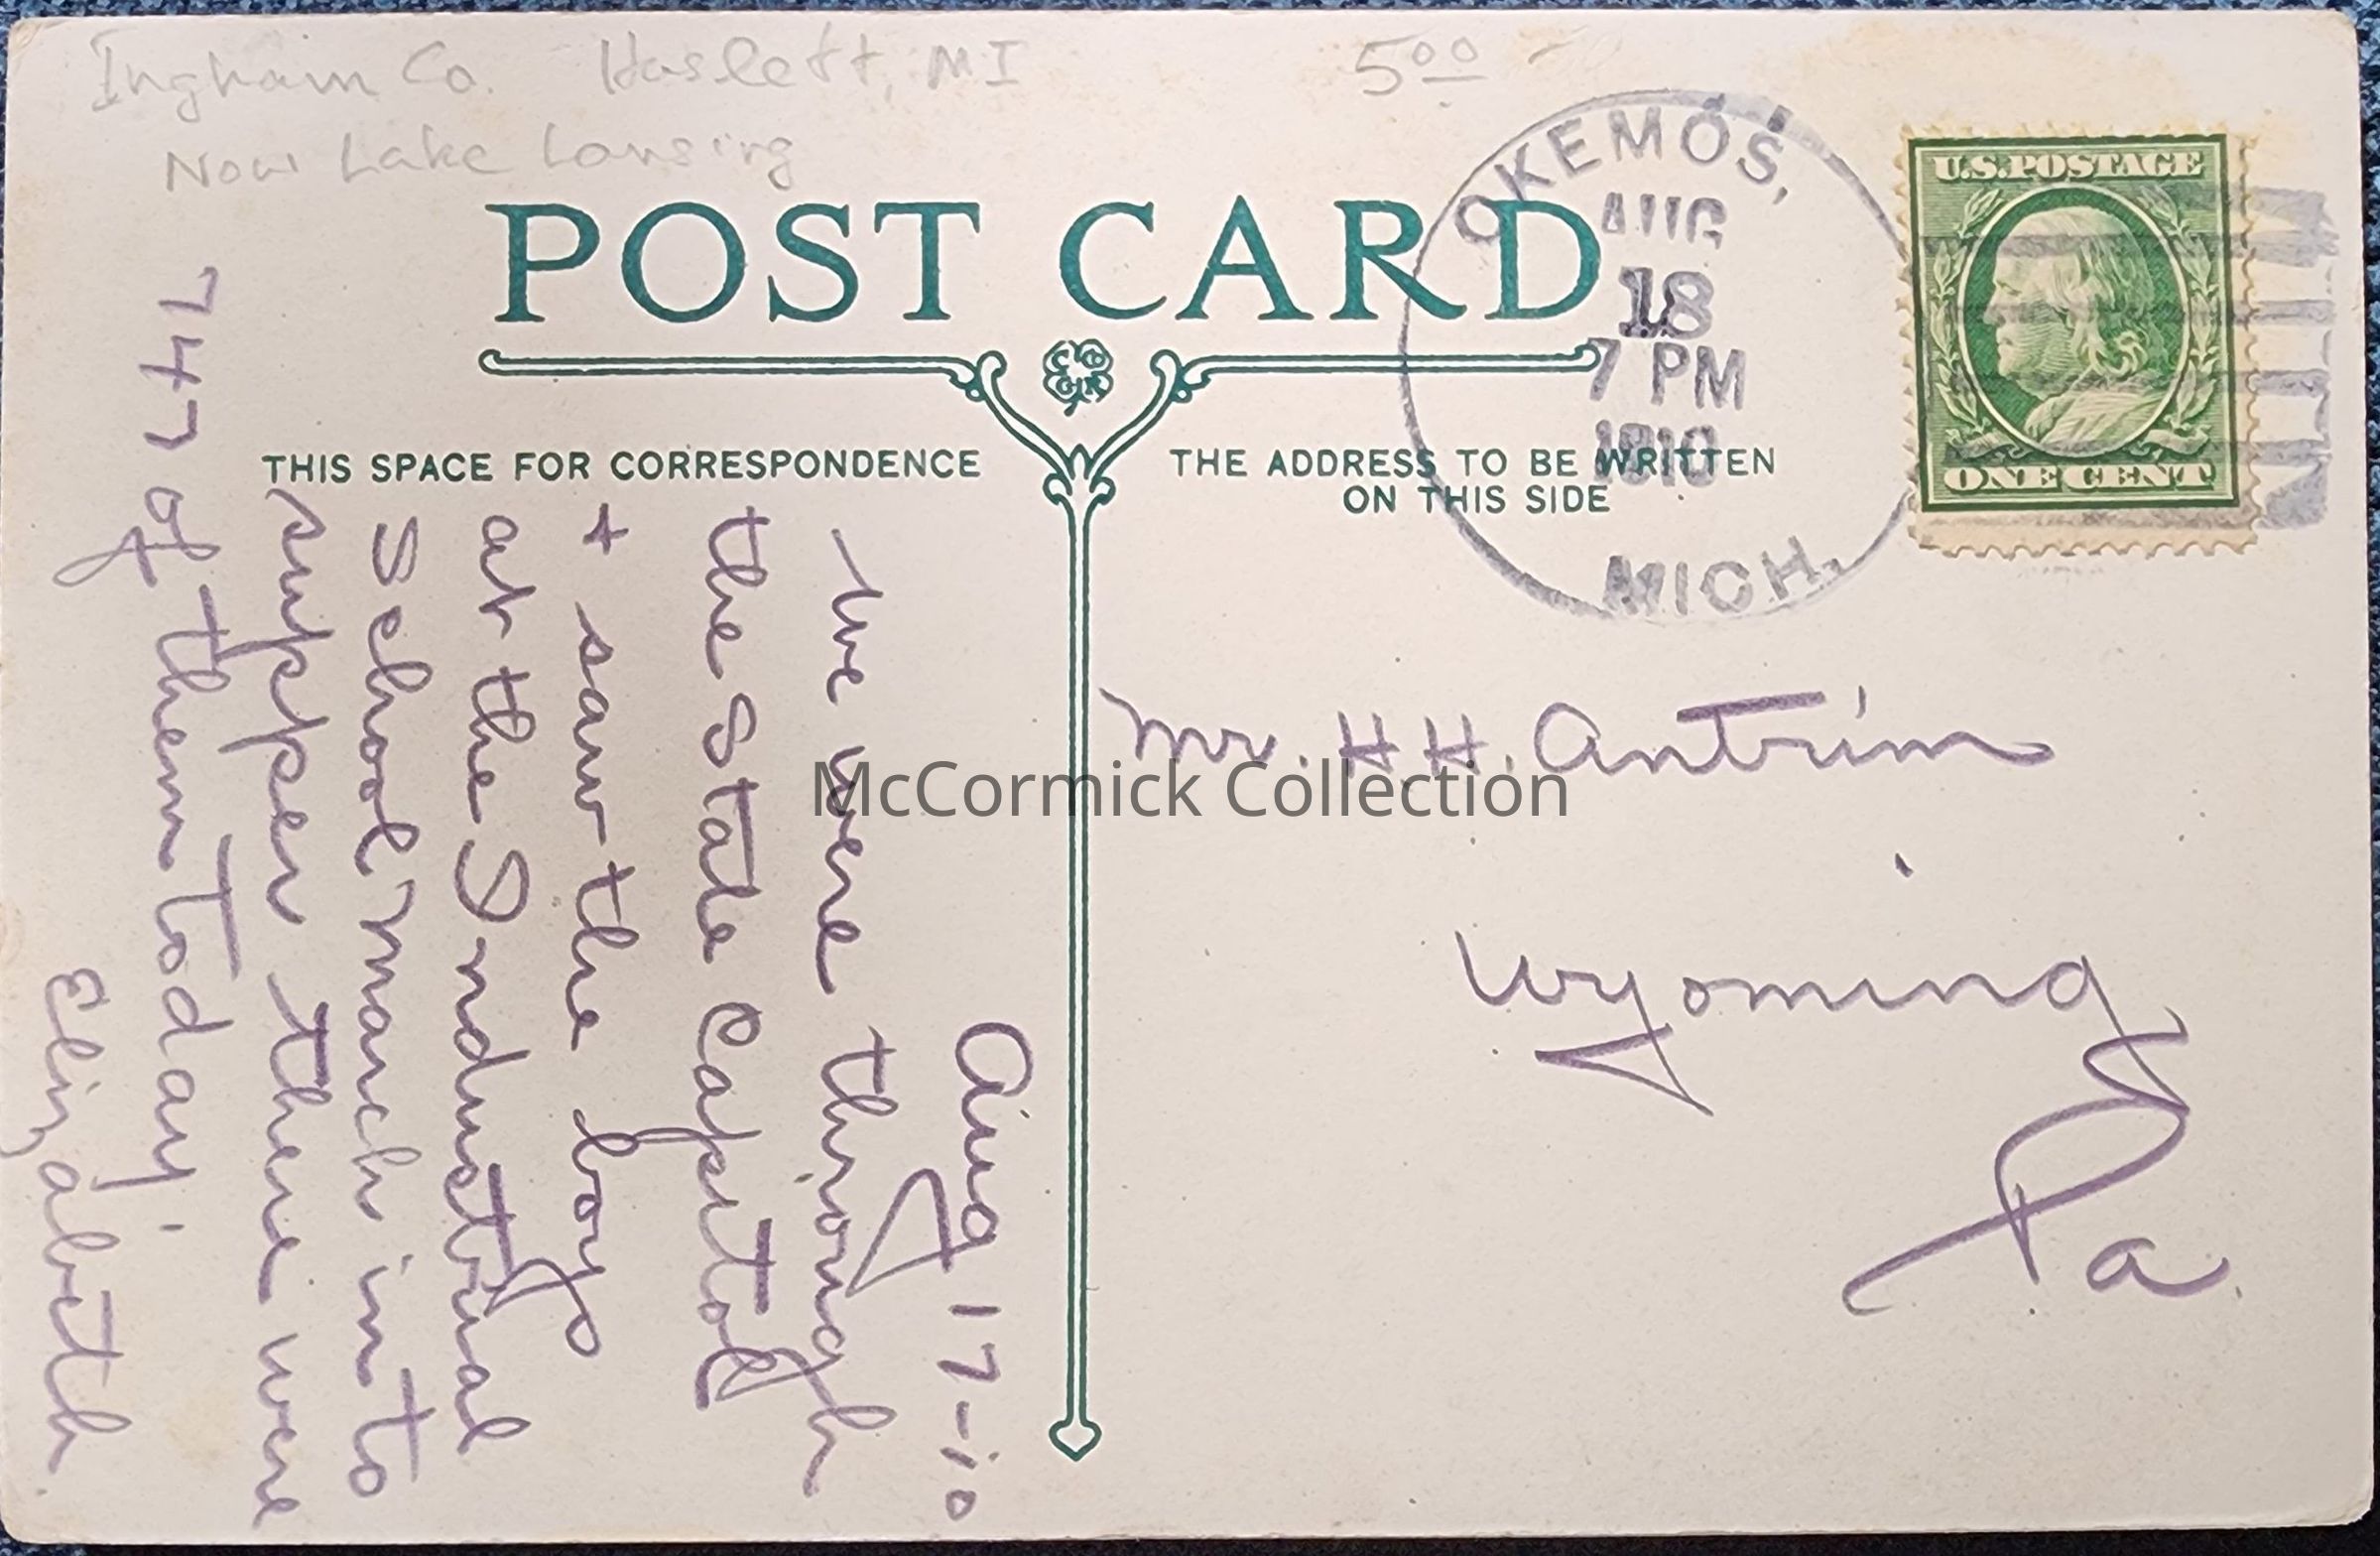 Ingham Co. Haslett, MI 5 00 -
Now Lake Lansing
POST CARD
THIS SPACE FOR CORRESPONDENCE
THE ADDRESS TO BE WRITTEN
ON THIS SIDE
OKEMOS,
AUG
18
7 PM
1910
MICH.
U.S. POSTAGE
ONE CENT
Aug 17-10
We were through
the State Capitol
+ saw the boys
at the Industrial
School march into
supper there were
747 of them today.
Elizabeth
Mr. H. H. Antrim
Wyoming
Pa.
McCormick Collection